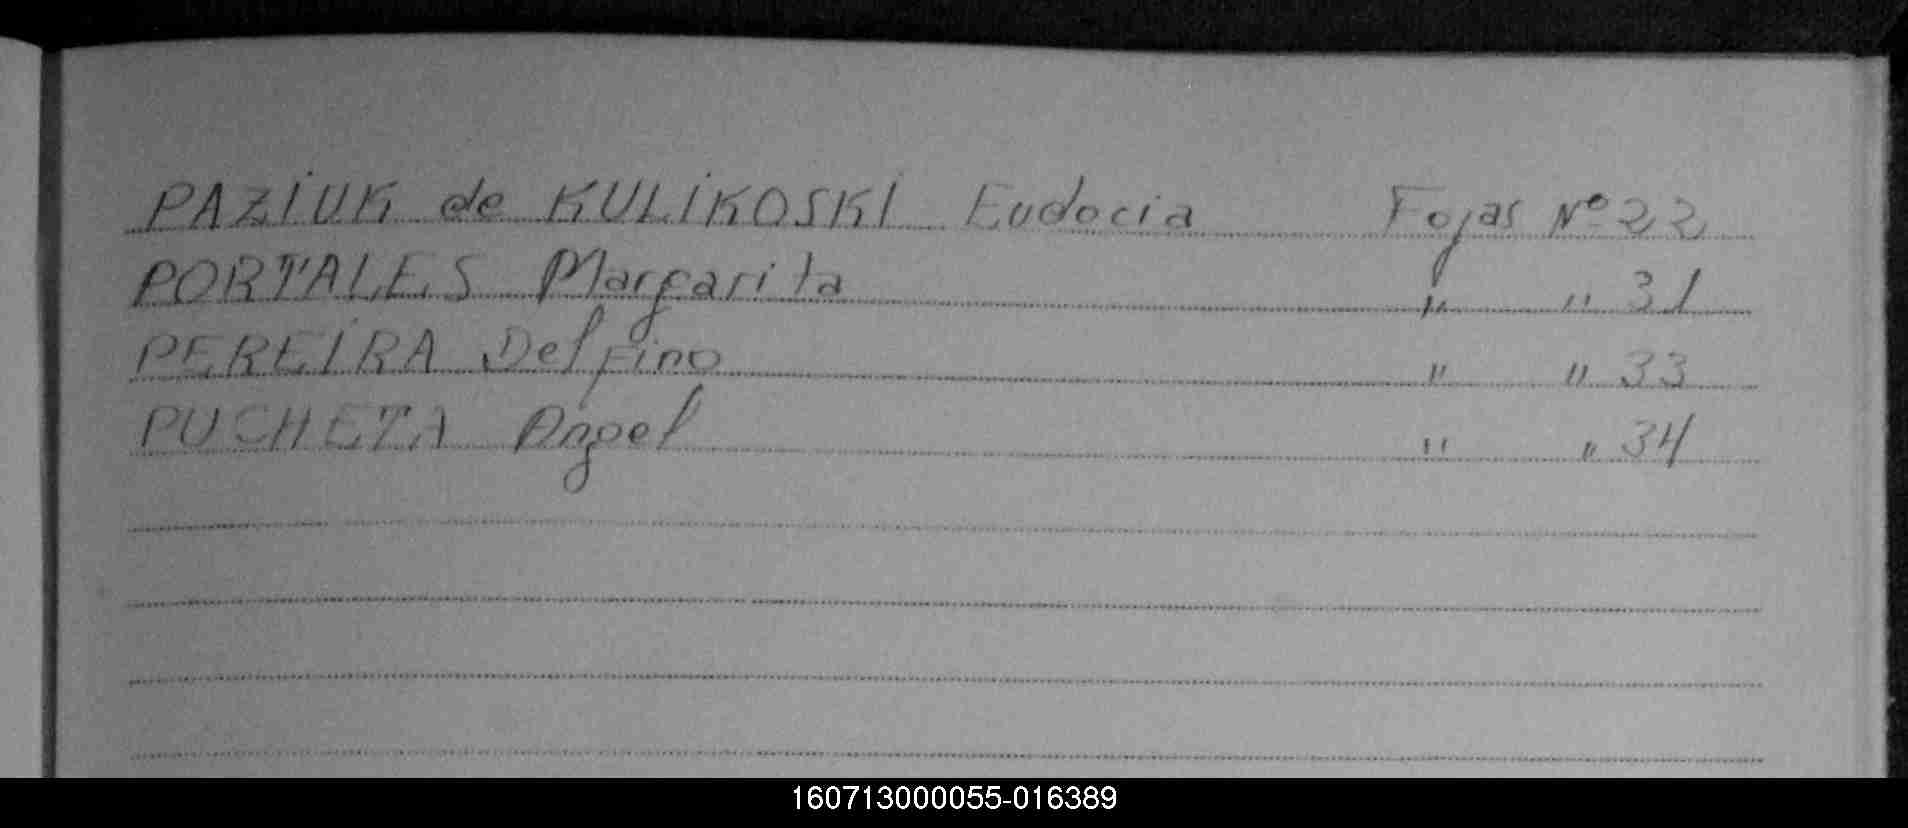 PAZIUK de KULIKOSKI Eudocia Fojas Nº 22
PORTALES Margarita " " 31
PEREIRA Delfino " " 33
PUCHETA Angel " " 34
160713000055-016389